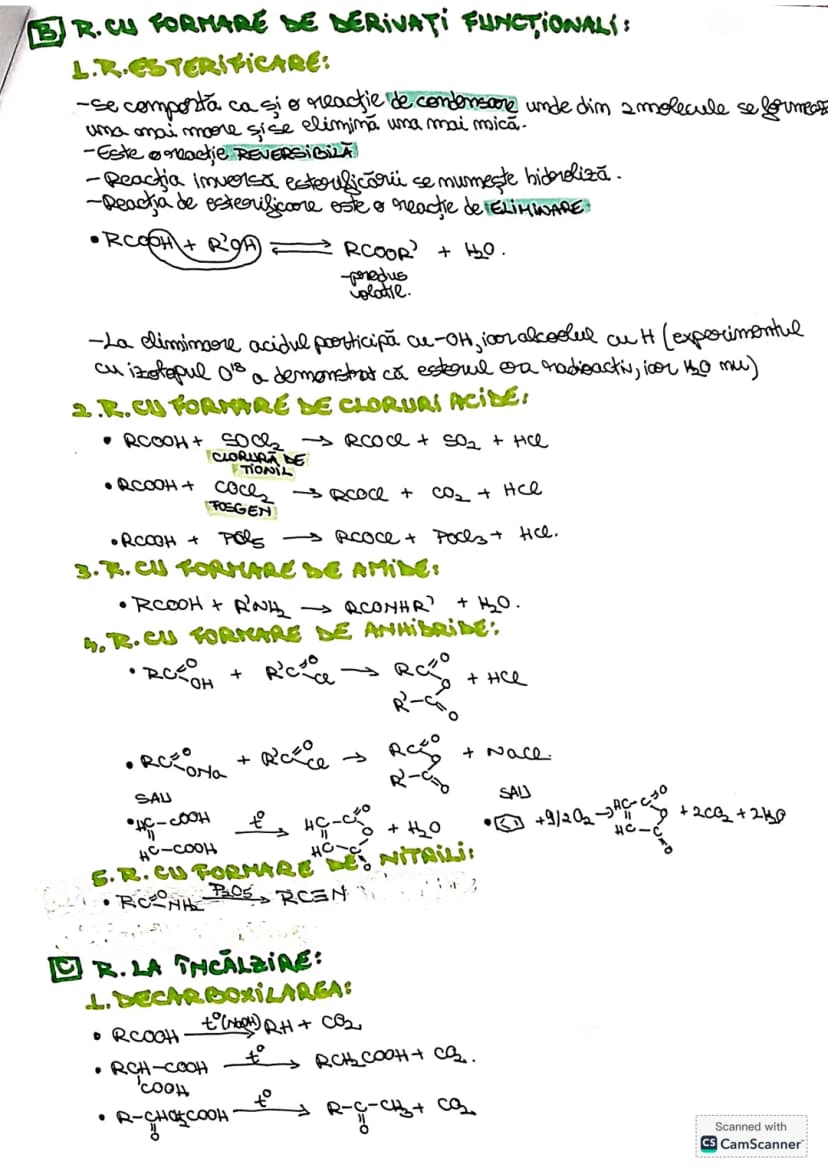 B) R. CU FORMARE DE DERIVAȚI FUNCȚIONALI:
1. R. ESTERIFICARE:
-Se comportă ca și o reacție de condensare unde din 2 molecule se formează
una mai mare și se elimină una mai mică.
-Este o reacție REVERSIBILĂ
-Reacția inversă esterificării se numește hidroliză.
-Reacția de esterificare este o reacție de ELIMINARE.
• RCOOH + R'OH ⇌ RCOOR' + H₂O.
-produs
volatil.
-La eliminare acidul participă cu -OH, iar alcoolul cu H (experimentul
cu izotopul O¹⁸ a demonstrat că esterul era radioactiv, iar H₂O nu)
2. R. CU FORMARE DE CLORURI ACIDE:
• RCOOH + SOCl₂ → RCOCl + SO₂ + HCl
CLORURĂ DE
TIONIL
• RCOOH + COCl₂ → RCOCl + CO₂ + HCl
FOSGEN
• RCOOH + PCl₅ → RCOCl + POCl₃ + HCl.
3. R. CU FORMARE DE AMIDE:
• RCOOH + R'NH₂ → RCONHR' + H₂O.
4. R. CU FORMARE DE ANHIDRIDE:
• RC=O OH + R'C=O Cl → RC=O O R'-C=O + HCl
• RC=O ONa + R'C=O Cl → RC=O O R'-C=O + NaCl.
SAU SAU
• HC-COOH t° → HC-C=O O + H₂O • +9/2O₂ → HC-C=O O + 2CO₂ + 2H₂O
HC-COOH HC-C=O HC-C=O
5. R. CU FORMARE DE NITRILI:
• RC=O NH₂ P₂O₅ → RC≡N
C) R. LA ÎNCĂLZIRE:
1. DECARBOXILAREA:
• RCOOH t°(NaOH) → RH + CO₂
• RCH-COOH t° → RCH₂COOH + CO₂.
COOH
• R-CCH₂COOH t° → R-C-CH₃ + CO₂
O O
Scanned with
CS CamScanner